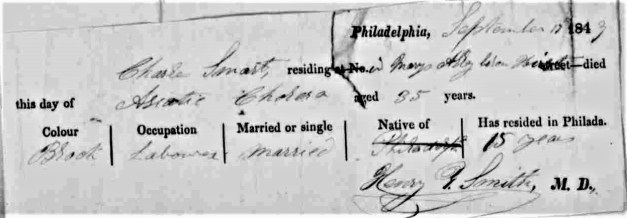 Philadelphia, September 17 1849
Charle Smart, residing at No. in Marys Alley street—died
this day of Asiatic Cholora aged 35 years.
Colour Occupation Married or single Native of Has resided in Philada.
Labourer married 15 years
Henry Smith, M. D.